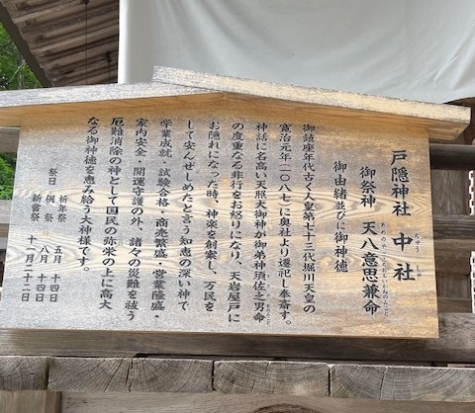 戸隠神社 中社
御祭神 天八意思兼命
御由緒並びに御神徳
御鎮座年代古く人皇第七十三代堀川天皇の
寛治元年(一〇八七)に奥社より遷祀し奉斎す。
神話に名高い天照大御神が御弟神須佐之男命
の度重なる非行をお怒りになり、天岩屋戸に
お隠れになった時、神楽を創案し、万民を
して安んぜしめたと言う知恵の深い神で
学業成就・試験合格・商売繁盛・営業隆盛・
家内安全・開運守護の外、諸々の災難を祓う
厄難消除の神として国民の弥来の上に高大
なる御神徳を恵み給う大神様です。
祭日 祈年祭 五月 十四日
例祭 八月 十四日
新嘗祭 十一月二十二日